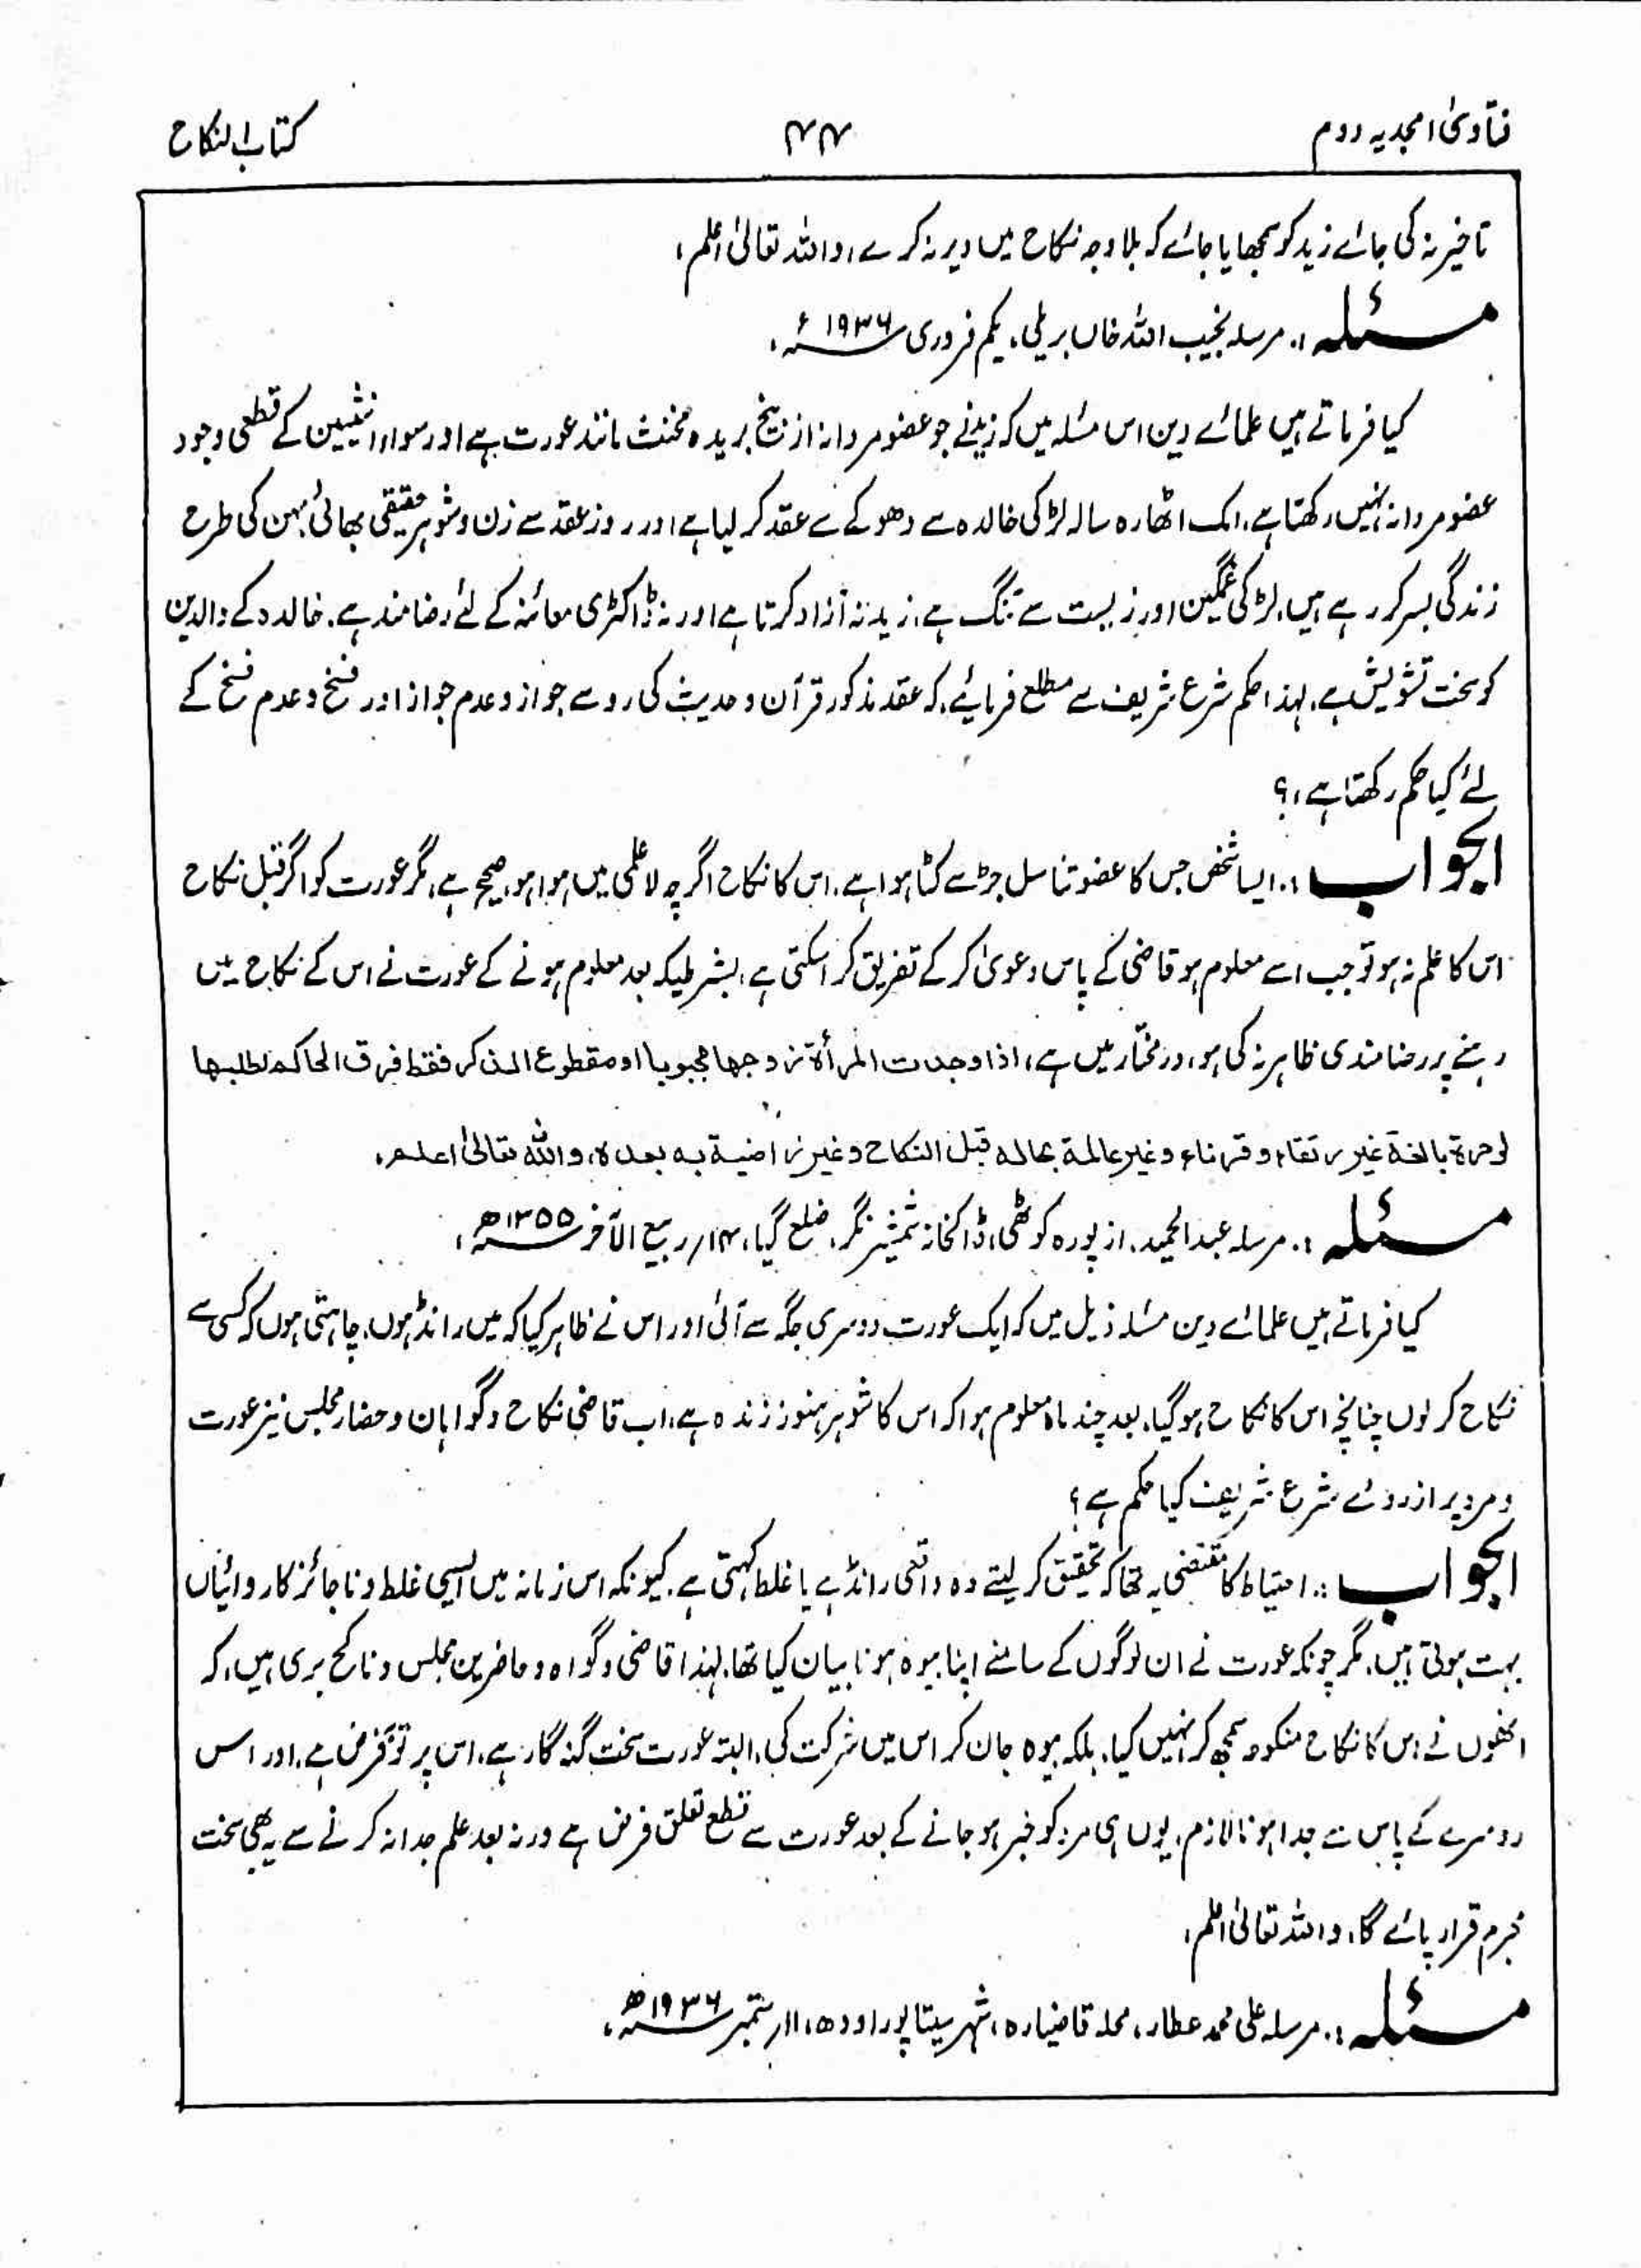 فتاویٰ امجدیہ دوم
۴۴
کتاب النکاح
تاخیر نہ کی جائے زید کو سمجھایا جائے کہ بلا وجہ نکاح میں دیر نہ کرے، واللہ تعالیٰ اعلم،
مسئلہ:۔ مرسلہ نجیب اللہ خاں بریلی، یکم فروری ۱۹۳۶ء،
کیا فرماتے ہیں علمائے دین اس مسئلہ میں کہ زید نے جو عضو مردانہ از بیخ بریدہ مخنث مانند عورت ہے اور سوا انثیین کے قطعی وجود
عضو مردانہ نہیں رکھتا ہے، ایک اٹھارہ سالہ لڑکی خالدہ سے دھوکے سے عقد کر لیا ہے اور روز عقد سے زن و شوہر حقیقی بھائی بہن کی طرح
زندگی بسر کر رہے ہیں، لڑکی غمگین اور زیست سے تنگ ہے، زید نہ آزاد کرتا ہے اور نہ ڈاکٹری معائنہ کے لئے رضامند ہے، خالدہ کے والدین
کو سخت تشویش ہے، لہذا حکم شرع شریف سے مطلع فرمائیے، کہ عقد مذکور قرآن و حدیث کی رو سے جواز و عدم جواز اور فسخ و عدم فسخ کے
لئے کیا حکم رکھتا ہے؟
الجواب:۔ ایسا شخص جس کا عضو تناسل جڑ سے کٹا ہوا ہے، اس کا نکاح اگرچہ لاعلمی میں ہوا ہو، صحیح ہے، مگر عورت کو اگر قبل نکاح
اس کا علم نہ ہو تو جب اسے معلوم ہو قاضی کے پاس دعویٰ کر کے تفریق کراسکتی ہے، بشرطیکہ بعد معلوم ہونے کے عورت نے اس کے نکاح میں
رہنے پر رضامندی ظاہر نہ کی ہو، درمختار میں ہے، اذا وجدت المرأۃ زوجھا مجبوبا او مقطوع الذکر فقط فرق الحاکم لطلبھا
لو حرۃ بالغۃ غیر رتقاء و قرناء و غیر عالمۃ بحالہ قبل النکاح و غیر راضیۃ بہ بعدہ، واللہ تعالیٰ اعلم،
مسئلہ:۔ مرسلہ عبد الحمید، از پورہ کوٹھی، ڈاکخانہ شمشیر نگر، ضلع گیا، ۱۴/ ربیع الآخر ۱۳۵۵ھ،
کیا فرماتے ہیں علمائے دین مسئلہ ذیل میں کہ ایک عورت دوسری جگہ سے آئی اور اس نے ظاہر کیا کہ میں رانڈ ہوں، چاہتی ہوں کہ کسی سے
نکاح کر لوں چنانچہ اس کا نکاح ہو گیا، بعد چند ماہ معلوم ہوا کہ اس کا شوہر ہنوز زندہ ہے، اب قاضی نکاح و گواہان و حضار مجلس نیز عورت
و مرد پر از روئے شرع شریف کیا حکم ہے؟
الجواب:۔ احتیاط کا مقتضی یہ تھا کہ تحقیق کر لیتے وہ واقعی رانڈ ہے یا غلط کہتی ہے، کیونکہ اس زمانہ میں ایسی غلط و ناجائز کاروائیاں
بہت ہوتی ہیں، مگر چونکہ عورت نے ان لوگوں کے سامنے اپنا بیوہ ہونا بیان کیا تھا، لہذا قاضی و گواہ و حاضرین مجلس و ناکح بری ہیں، کہ
انھوں نے اس کا نکاح منکوحہ سمجھ کر نہیں کیا، بلکہ بیوہ جان کر اس میں شرکت کی، البتہ عورت سخت گنہگار ہے، اس پر توبہ فرض ہے، اور اس
دوسرے کے پاس سے جدا ہونا لازم، یوں ہی مرد کو خبر ہو جانے کے بعد عورت سے قطع تعلق فرض ہے ورنہ بعد علم جدا نہ کرنے سے یہ بھی سخت
مجرم قرار پائے گا، واللہ تعالیٰ اعلم،
مسئلہ:۔ مرسلہ علی محمد عطار، محلہ قاضیارہ، شہر سیتاپور اودھ، ۱۱/ ستمبر ۱۹۳۶ھ،